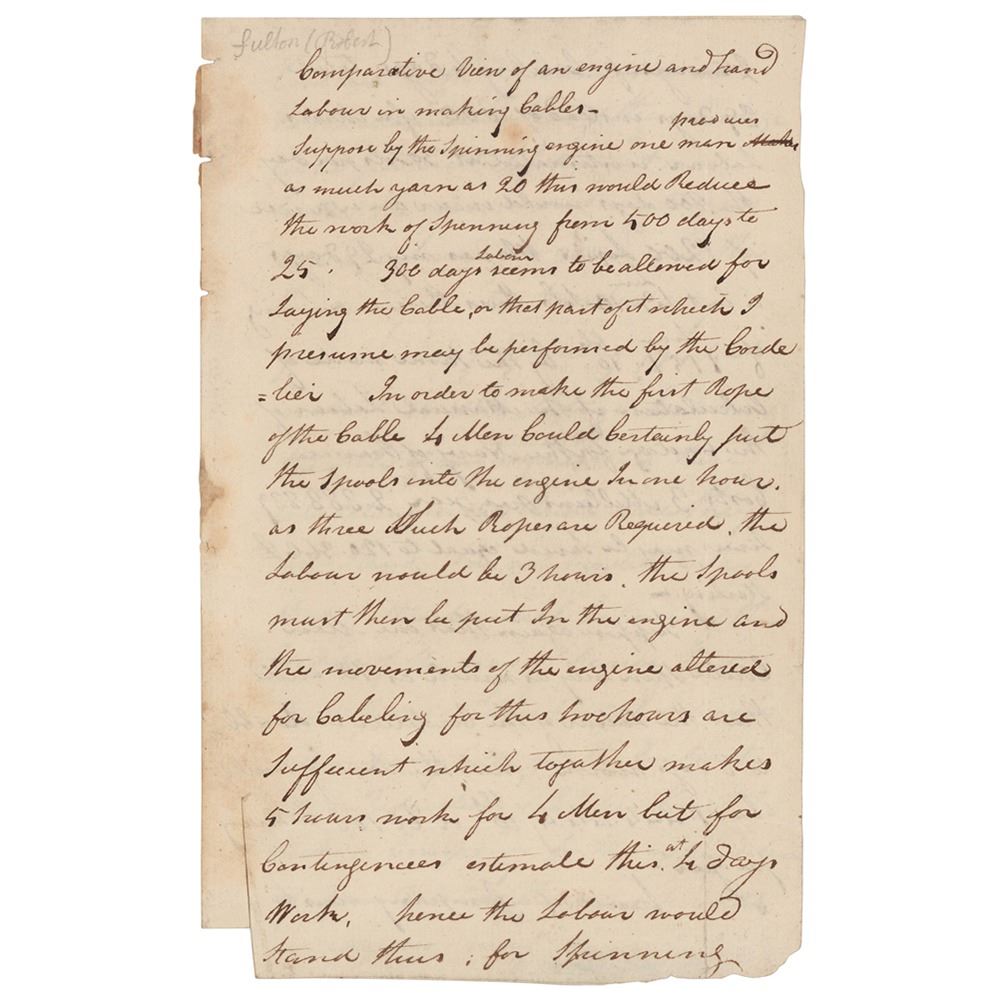 Fulton (Robert)
Comparative View of an engine and hand
Labour in making Cables-
produces
Suppose by the Spinning engine one man Makes
as much yarn as 20 this would Reduce
the work of Spenning from 500 days to
25. 300 days Labour seems to be allowed for
Laying the Cable, or that part of it which I
presume may be performed by the Corde
=lier In order to make the first Rope
of the Cable 4 Men Could Certainly put
the Spools into the engine In one hour.
as three Such Ropes are Required, the
Labour would be 3 hours. the Spools
must then be put In the engine and
the movements of the engine altered
for Cabeling for this two hours are
Sufficient which together makes
5 hours work for 4 Men but for
Contingences estemate this at 4 days
Work, hence the Labour would
Stand thus; for Spinning